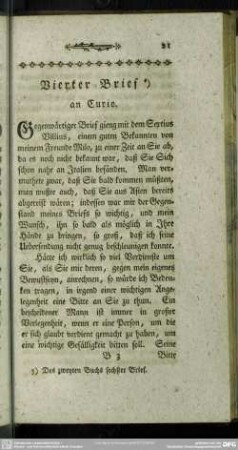 21
Vierter Brief ¹)
an Curio.
Gegenwärtiger Brief gieng mit dem Sextius
Villius, einem guten Bekannten von
meinem Freunde Milo, zu einer Zeit an Sie ab,
da es noch nicht bekannt war, daß Sie Sich
schon nahe an Italien befänden. Man ver-
muthete zwar, daß Sie bald kommen müßten,
man wußte auch, daß Sie aus Asien bereits
abgereist wären; indessen war mir der Gegen-
stand meines Briefs so wichtig, und mein
Wunsch, ihn so bald als möglich in Ihre
Hände zu bringen, so groß, daß ich seine
Uebersendung nicht genug beschleunigen konnte.
Hätte ich wirklich so viel Verdienste um
Sie, als Sie mir deren, gegen mein eigenes
Bewustseyn, anrechnen, so würde ich Beden-
ken tragen, in irgend einer wichtigen Ange-
legenheit eine Bitte an Sie zu thun. Ein
bescheidener Mann ist immer in grosser
Verlegenheit, wenn er eine Person, um die
er sich glaubt verdient gemacht zu haben, um
eine wichtige Gefälligkeit bitten soll. Seine
B 3 Bitte
1) Des zweyten Buchs sechster Brief.